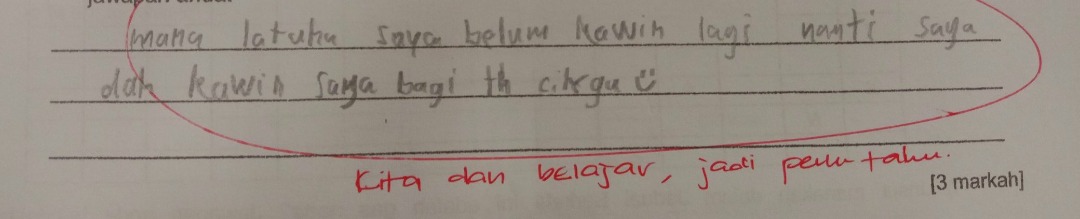 mana latuhu saya belum kawin lagi nanti saya
dah kawin saya bagi th cikgu
Kita dan belajar, jadi perlu tahu.
[3 markah]